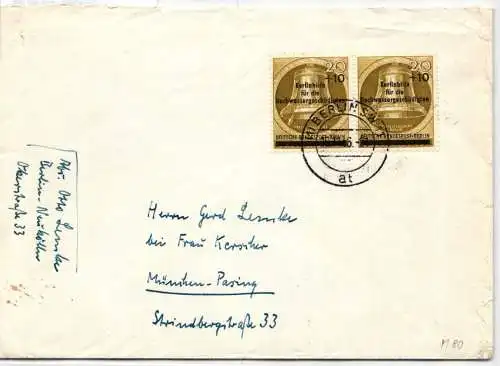 20 20
+10 +10
Berlinhilfe Berlinhilfe
für die für die
Hochwassergeschädigten Hochwassergeschädigten
DEUTSCHE BUNDESPOST BERLIN DEUTSCHE BUNDESPOST BERLIN
BERLIN
at
Abs. Otto Lemke
Berlin-Neukölln
Okerstraße 33
Herrn Gerd Lemke
bei Frau Kerscher
München-Pasing
Strindbergstraße 33
M 80